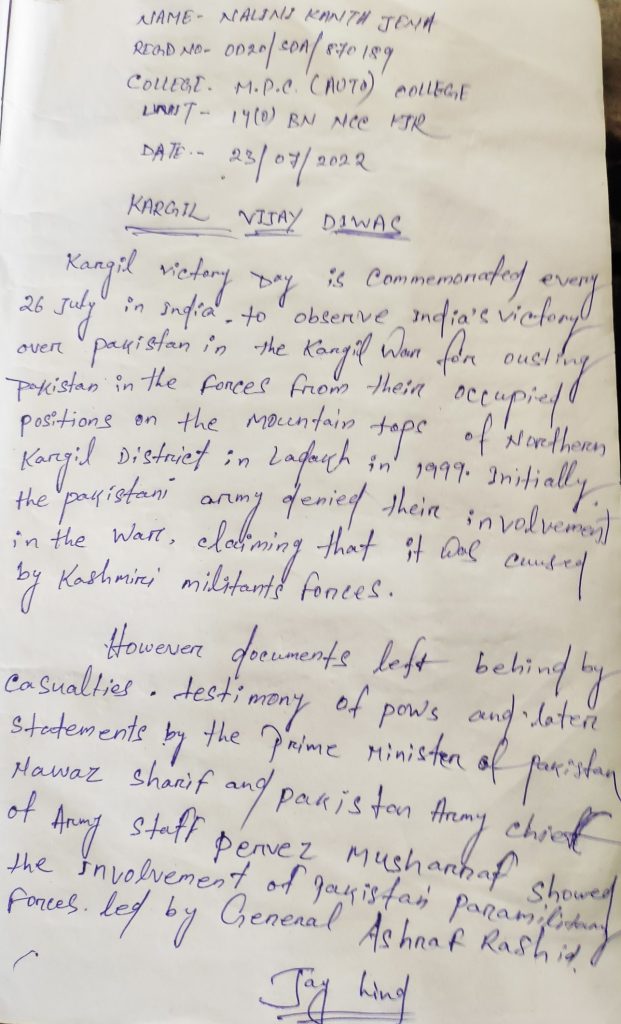 NAME- NALINI KANTA JENA
REGD NO- OD20/SDA/870189
COLLEGE. M.P.C. (AUTO) COLLEGE
UNIT- 14(O) BN NCC KJR
DATE:- 23/07/2022
KARGIL VIJAY DIWAS
Kargil victory Day is Commemorated every
26 July in India. to observe India's victory
over pakistan in the Kargil War for ousting
pakistan in the forces from their occupied
positions on the mountain tops of Northern
Kargil District in Ladakh in 1999. Initially,
the pakistani army denied their involvement
in the War, claiming that it was caused
by Kashmiri militants forces.
However documents left behind by
Casualties. testimony of pows and later
Statements by the Prime Minister of pakistan
Nawaz Sharif and pakistan Army chief
of Army Staff pervez Musharraf showed
the involvement of pakistan paramilitary
forces. led by General Ashraf Rashid.
Jay hind